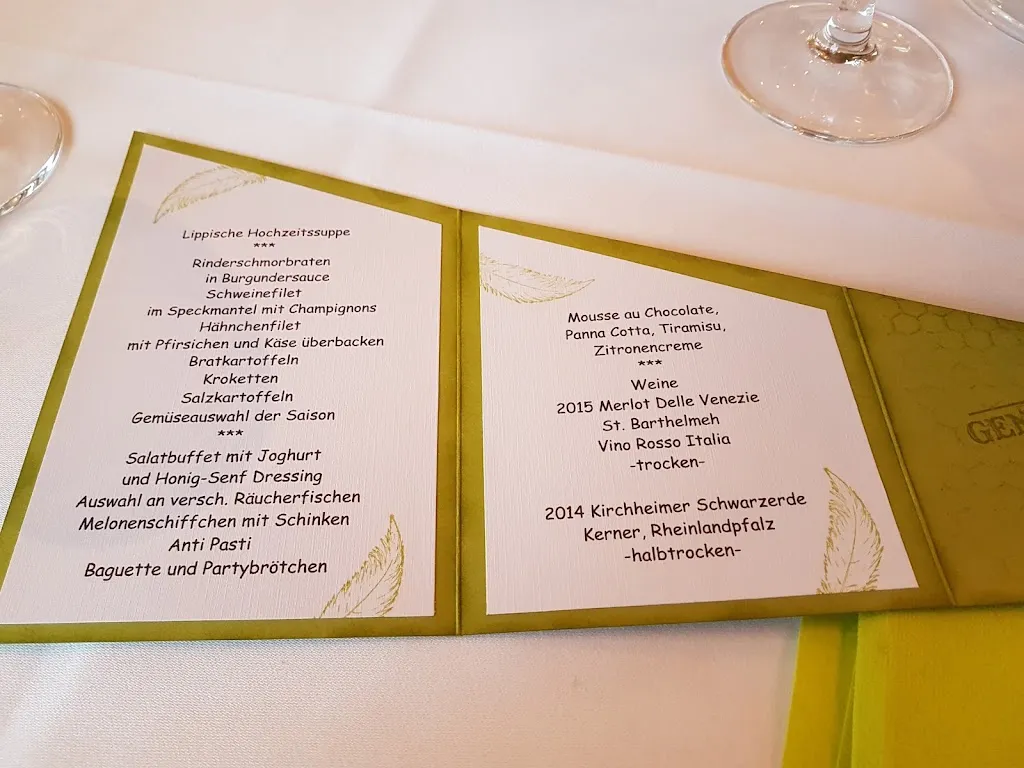 Lippische Hochzeitssuppe
***
Rinderschmorbraten
in Burgundersauce
Schweinefilet
im Speckmantel mit Champignons
Hähnchenfilet
mit Pfirsichen und Käse überbacken
Bratkartoffeln
Kroketten
Salzkartoffeln
Gemüseauswahl der Saison
***
Salatbuffet mit Joghurt
und Honig-Senf Dressing
Auswahl an versch. Räucherfischen
Melonenschiffchen mit Schinken
Anti Pasti
Baguette und Partybrötchen
Mousse au Chocolate,
Panna Cotta, Tiramisu,
Zitronencreme
***
Weine
2015 Merlot Delle Venezie
St. Barthelmeh
Vino Rosso Italia
-trocken-
2014 Kirchheimer Schwarzerde
Kerner, Rheinlandpfalz
-halbtrocken-